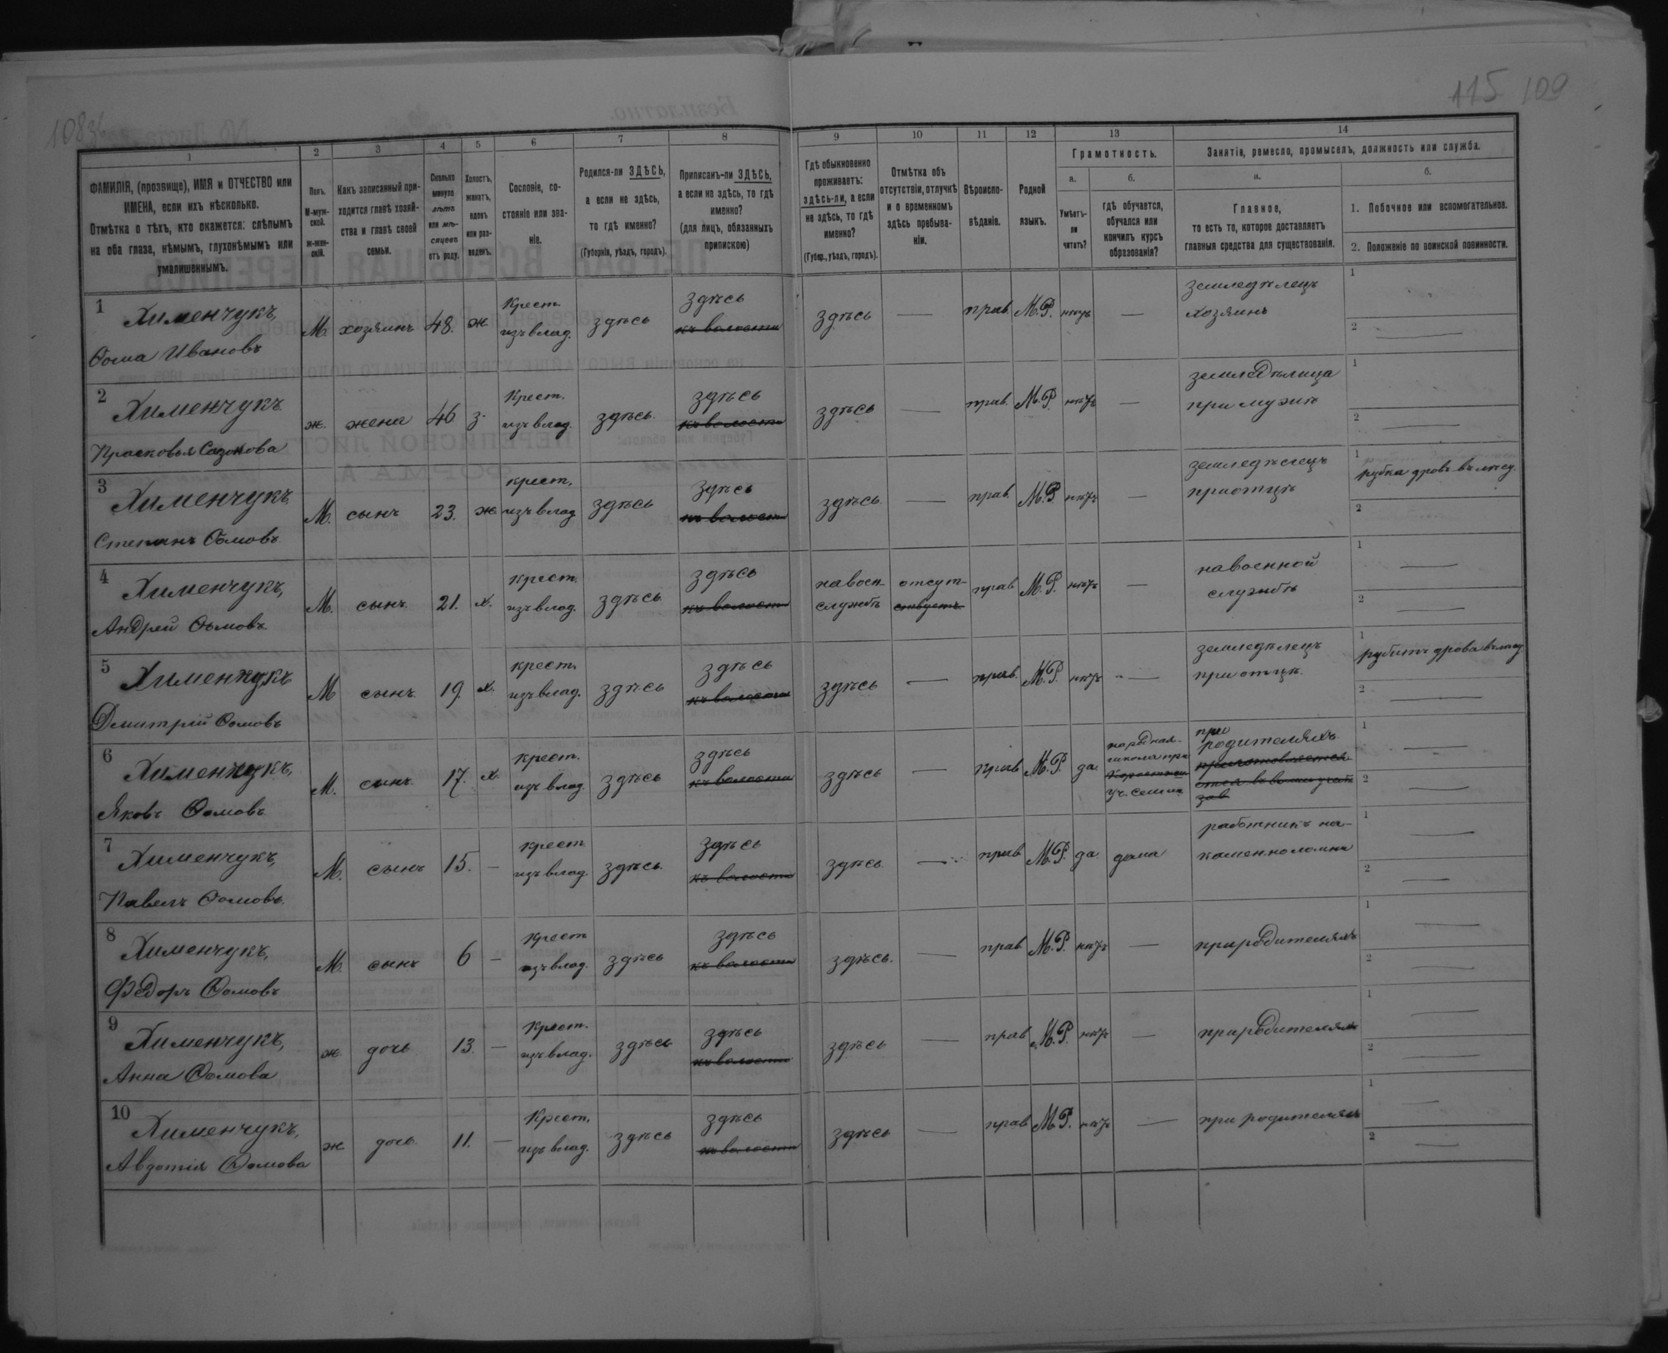 108
115 109
1 2 3 4 5 6 7 8 9 10 11 12 13 14
ФАМИЛІЯ, (прозвище), ИМЯ и ОТЧЕСТВО или
ИМЕНА, если ихъ нѣсколько.
Отмѣтка о тѣхъ, кто окажется: слѣпымъ
на оба глаза, нѣмымъ, глухонѣмымъ или
умалишеннымъ.
Полъ.
М-муж-
ской.
ж-жен-
скій.
Какъ записанный при-
ходится главѣ хозяй-
ства и главѣ своей
семьи.
Сколько
минуло
лѣтъ
или мѣ-
сяцевъ
отъ роду.
Холостъ,
женатъ,
вдовъ
или раз-
веденъ.
Сословіе, со-
стояніе или зва-
ніе.
Родился-ли ЗДѢСЬ,
а если не здѣсь,
то гдѣ именно?
(Губернія, уѣздъ, городъ).
Приписанъ-ли ЗДѢСЬ,
а если не здѣсь, то гдѣ
именно?
(для лицъ, обязанныхъ
припискою)
Гдѣ обыкновенно
проживаетъ:
здѣсь-ли, а если
не здѣсь, то гдѣ
именно?
(Губер., уѣздъ, городъ).
Отмѣтка объ
отсутствіи, отлучкѣ
и о временномъ
здѣсь пребыва-
ніи.
Вѣроиспо-
вѣданіе.
Родной
языкъ.
Грамотность.
а.
Умѣетъ-
ли
читать?
б.
гдѣ обучается,
обучался или
кончилъ курсъ
образованія?
Занятіе, ремесло, промыселъ, должность или служба.
а.
Главное,
то есть то, которое доставляетъ
главныя средства для существованія.
б.
1. Побочное или вспомогательное.
2. Положеніе по воинской повинности.
1 Хименчукъ,
Ѳома Ивановъ
М. хозяинъ 48. ж.
Крест.
изъ влад.
здѣсь
здѣсь
къ волости
здѣсь — прав. М.Р. нѣтъ —
земледѣлецъ
хозяинъ
1
2
2 Хименчукъ
Прасковья Сазонова
ж. жена 46 з.
Крест.
изъ влад.
здѣсь.
здѣсь
къ волости
здѣсь — прав. М.Р. нѣтъ —
земледѣлица
при мужѣ
1
2
3 Хименчукъ,
Степанъ Ѳомовъ
М. сынъ 23. ж
крест.
изъ влад
здѣсь
здѣсь
къ волости
здѣсь — прав. М.Р. нѣтъ —
земледѣлецъ
при отцѣ
1 рубка дровъ въ лѣсу
2
4 Хименчукъ,
Андрей Ѳомовъ
М. сынъ. 21. х.
крест.
изъ влад.
здѣсь
здѣсь
къ волости
на воен.
службѣ
отсут-
ствуетъ
прав. М.Р. нѣтъ —
на военной
службѣ
1
2
5 Хименчукъ
Дмитрій Ѳомовъ
М сынъ 19. х.
крест.
изъ влад.
здѣсь
здѣсь
къ волости
здѣсь — прав. М.Р. нѣтъ —
земледѣлецъ
при отцѣ.
1 рубитъ дрова въ лѣсу
2
6 Хименчукъ,
Яковъ Ѳомовъ
М. сынъ. 17. х.
крест.
изъ влад.
здѣсь
здѣсь
къ волости
здѣсь — прав М.Р. да
народная
школа при
уч. семин
при
родителяхъ
1
2
7 Хименчукъ,
Павелъ Ѳомовъ.
М. сынъ 15. —
крест
изъ влад.
здѣсь.
здѣсь
къ волости
здѣсь — прав М.Р. да дома
работникъ на
каменноломнѣ
1
2
8 Хименчукъ,
Ѳедоръ Ѳомовъ
М. сынъ 6 —
крест
изъ влад.
здѣсь
здѣсь
къ волости
здѣсь. — прав. М.Р. нѣтъ — при родителяхъ
1
2
9 Хименчукъ,
Анна Ѳомова
ж. дочь 13 —
Крест.
изъ влад.
здѣсь
здѣсь
къ волости
здѣсь — прав М.Р. нѣтъ — при родителяхъ
1
2
10 Хименчукъ,
Авдотія Ѳомова
ж. дочь 11. —
Крест.
изъ влад.
здѣсь
здѣсь
къ волости
здѣсь — прав М.Р. нѣтъ — при родителяхъ
1
2